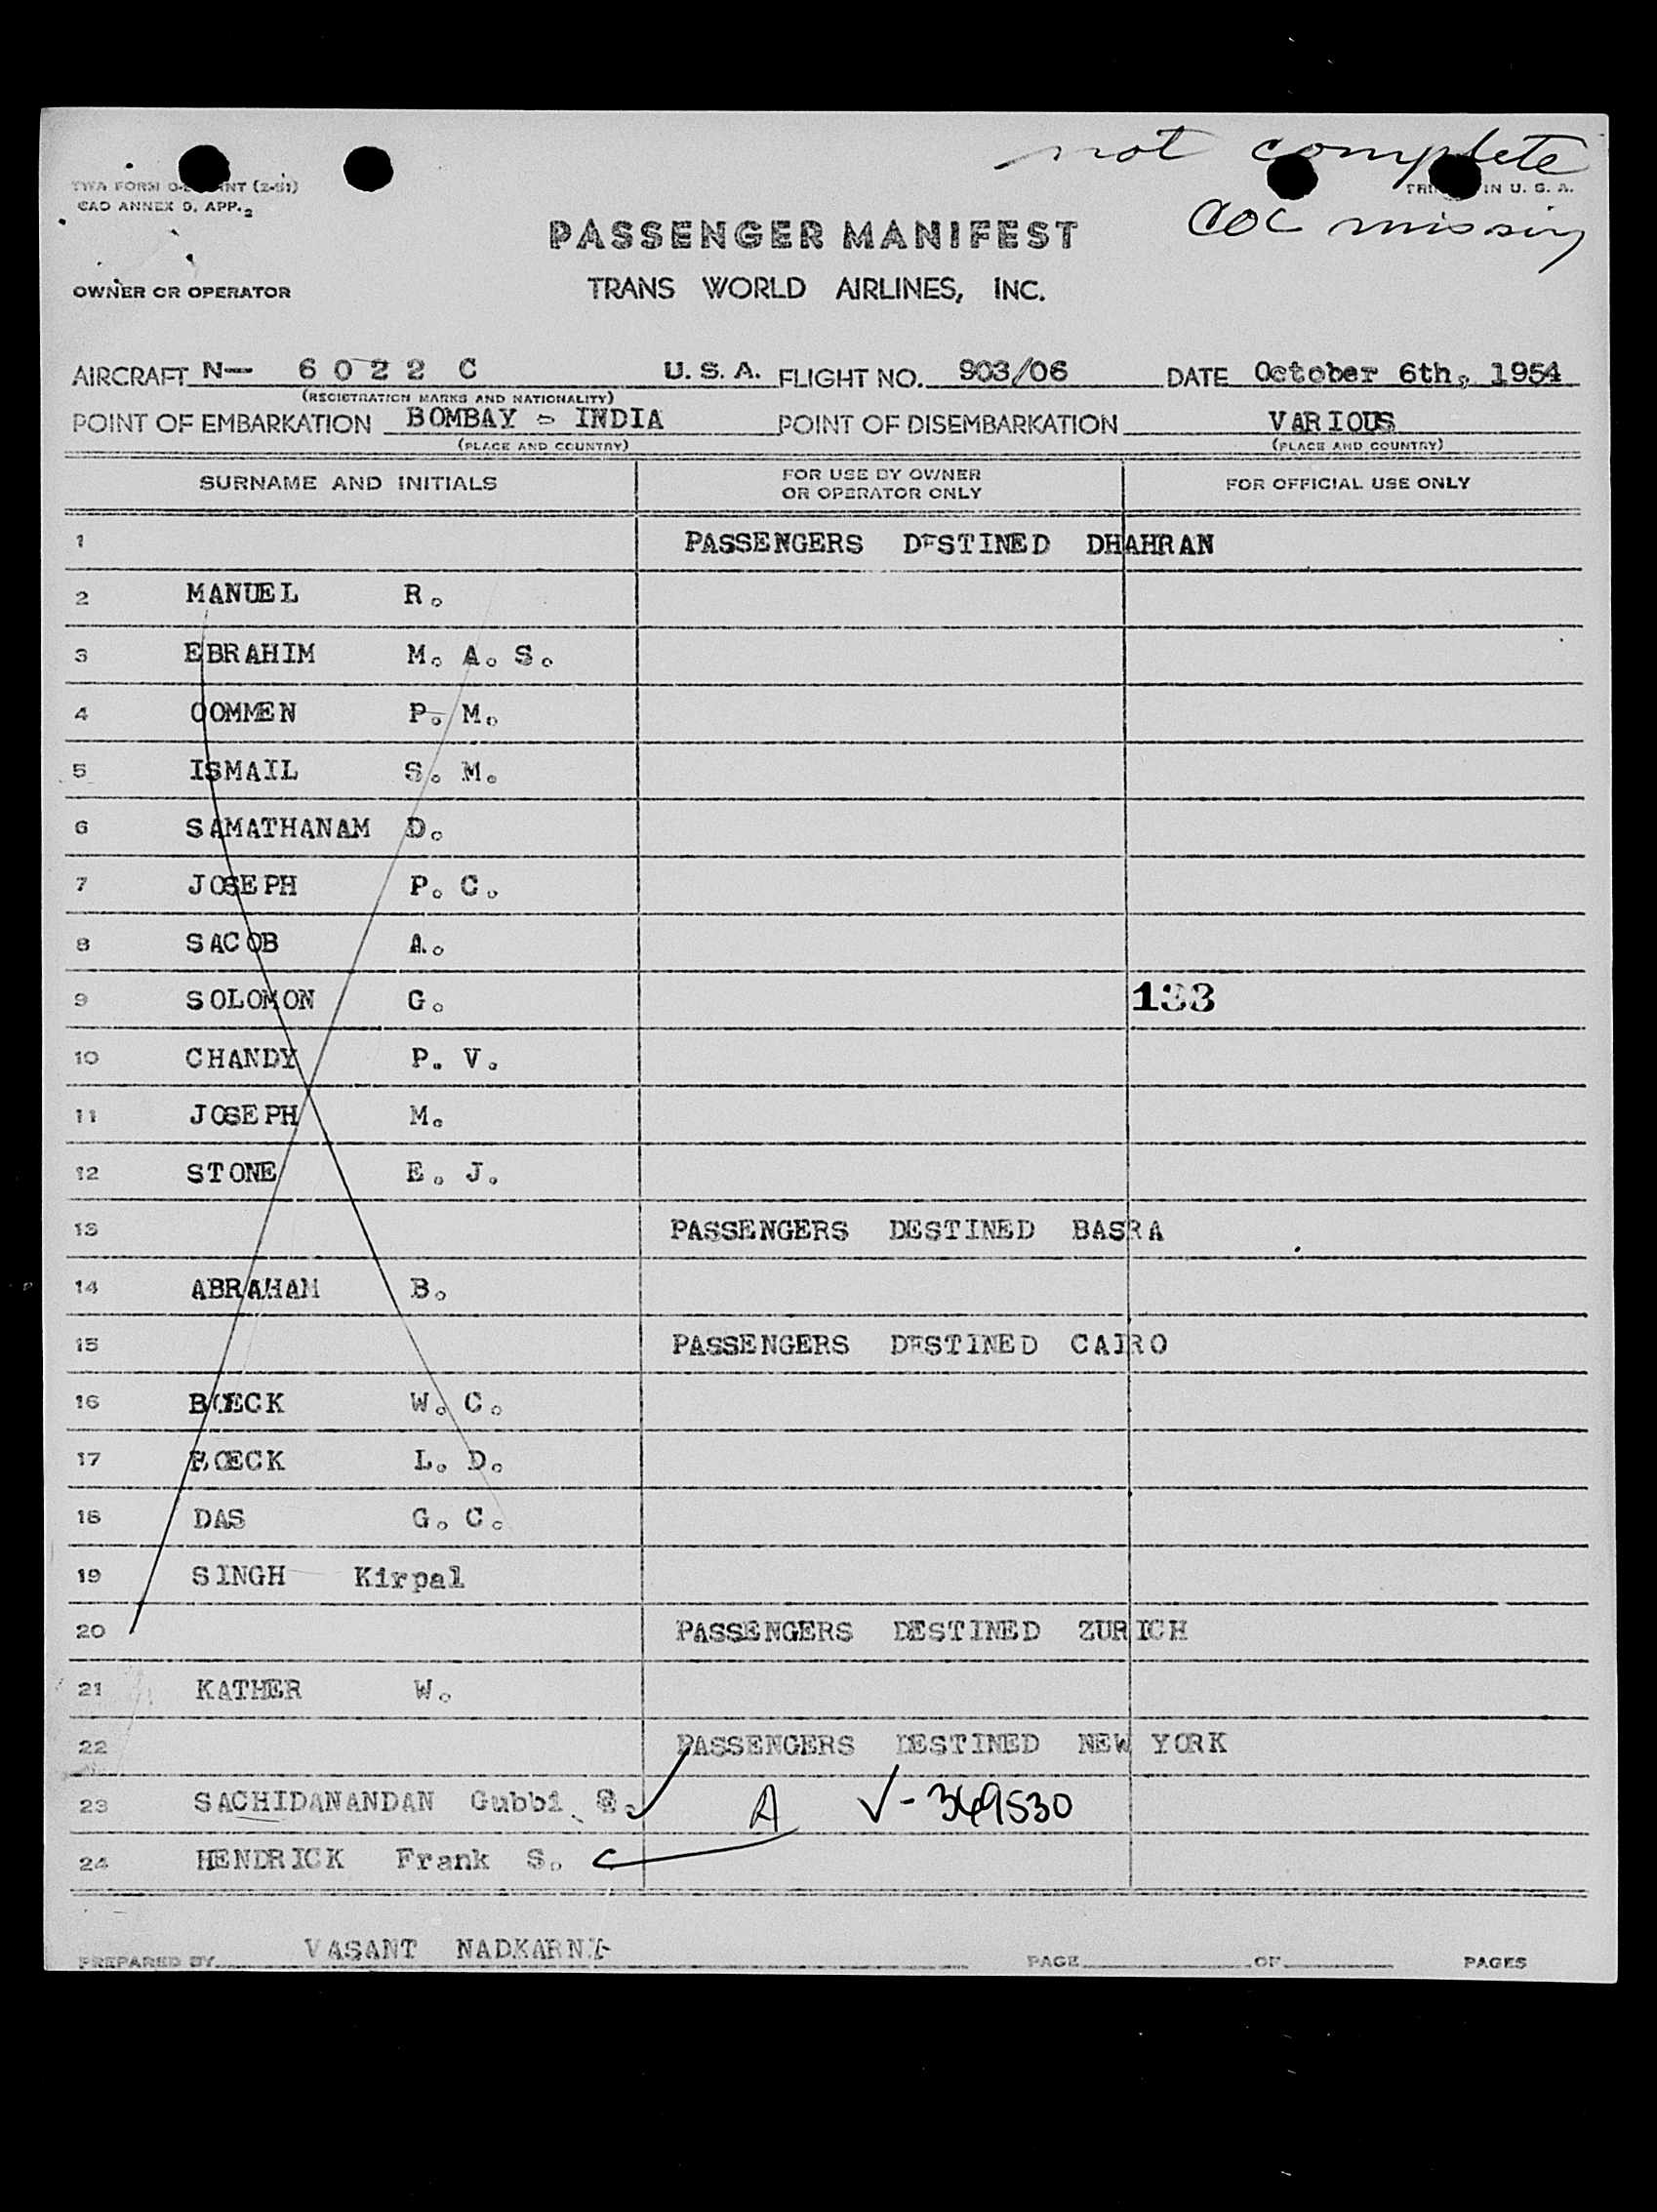 not complete
TWA FORM O- INT (2-51)
PRI IN U. S. A.
CAO ANNEX 9, APP. 2
COC missing
PASSENGER MANIFEST
OWNER OR OPERATOR
TRANS WORLD AIRLINES, INC.
AIRCRAFT N— 6 0 2 2 C U. S. A. FLIGHT NO. 903/06 DATE October 6th, 1954
(REGISTRATION MARKS AND NATIONALITY)
POINT OF EMBARKATION BOMBAY - INDIA POINT OF DISEMBARKATION VARIOUS
(PLACE AND COUNTRY) (PLACE AND COUNTRY)
SURNAME AND INITIALS FOR USE BY OWNER OR OPERATOR ONLY FOR OFFICIAL USE ONLY
1 PASSENGERS DESTINED DHAHRAN
2 MANUEL R.
3 EBRAHIM M. A. S.
4 OOMMEN P. M.
5 ISMAIL S. M.
6 SAMATHANAM D.
7 JOSEPH P. C.
8 SACOB A.
9 SOLOMON G. 133
10 CHANDY P. V.
11 JOSEPH M.
12 STONE E. J.
13 PASSENGERS DESTINED BASRA
14 ABRAHAM B.
15 PASSENGERS DESTINED CAIRO
16 BOECK W. C.
17 BOECK L. D.
18 DAS G. C.
19 SINGH Kirpal
20 PASSENGERS DESTINED ZURICH
21 KATHER W.
22 PASSENGERS DESTINED NEW YORK
23 SACHIDANANDAN Gubbi A √ - 349530
24 HENDRICK Frank S.
PREPARED BY VASANT NADKARNI PAGE OF PAGES